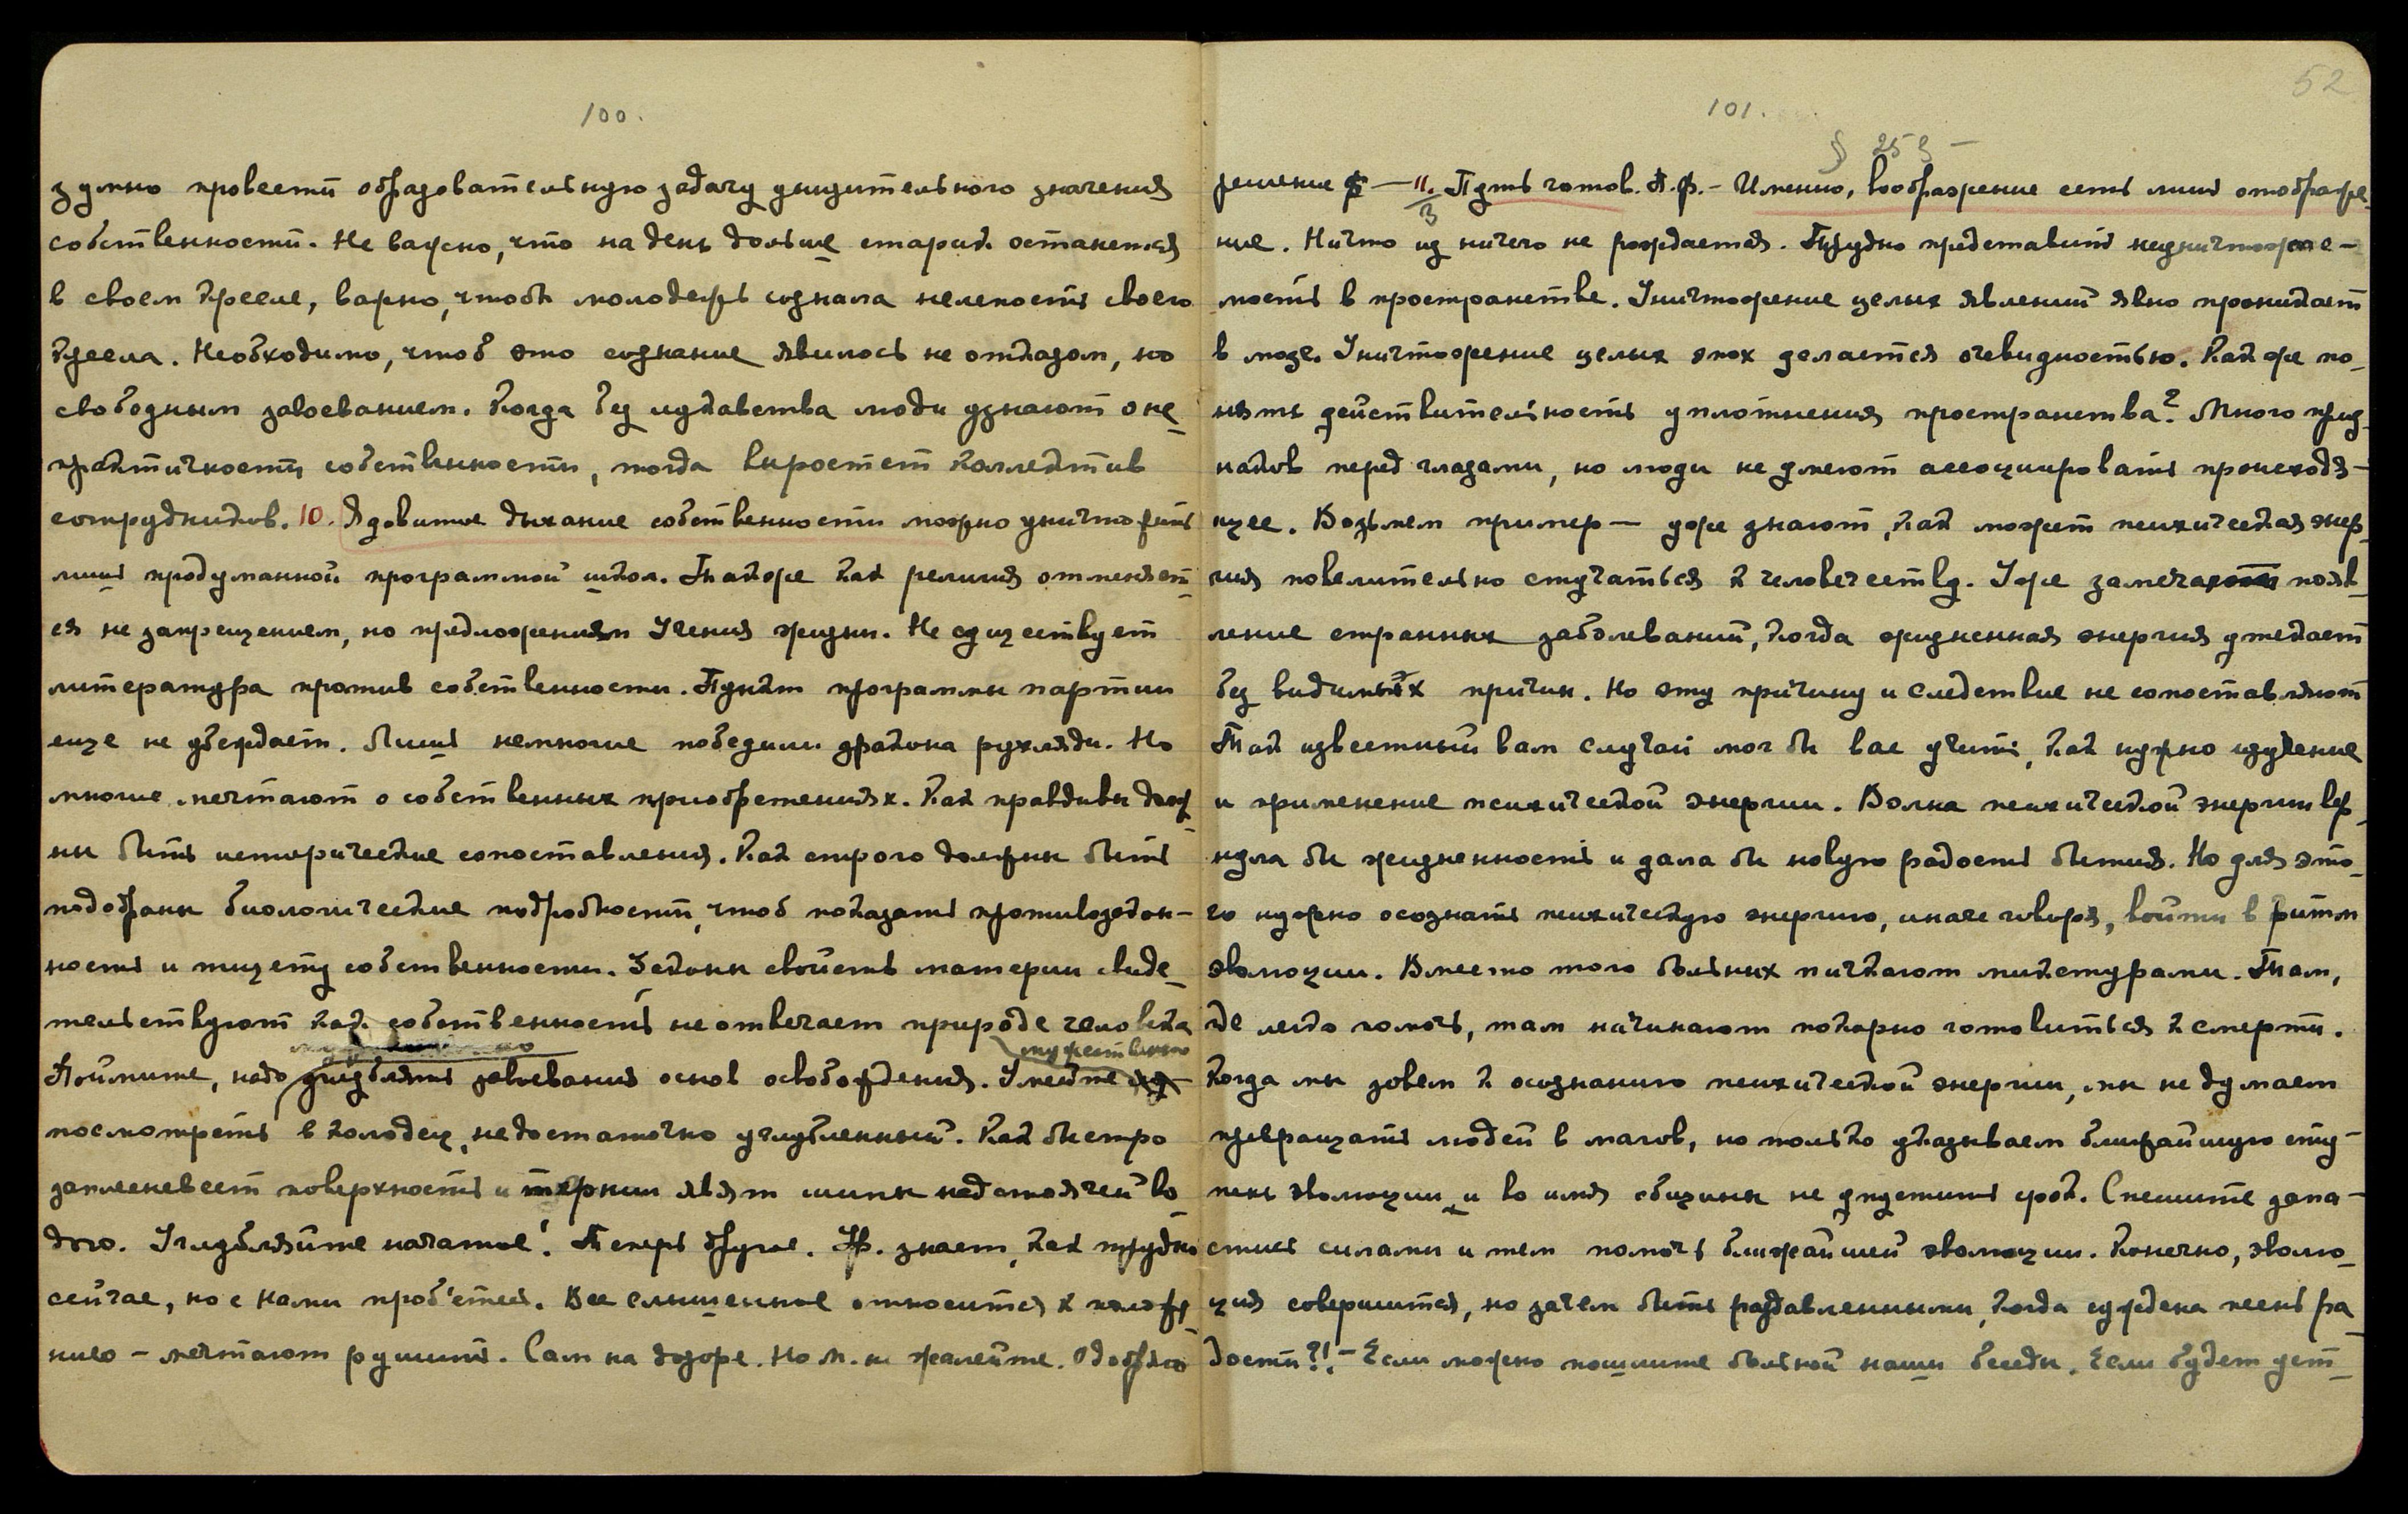 100.
зумно провести образовательную задачу уницительного значения
собственности. Не важно, что на день дольше старик останется
в своем кресле, важно, чтобы молодежь сознала нелепость своего
кресла. Необходимо, чтоб это сознание явилось не отказом, но
свободным завоеванием. Когда без лукавства люди узнают о не_
практичности собственности, тогда вырастет коллектив
сотрудников. 10. Ядовитое дыхание собственности можно уничтожить
лишь продуманной программой школ. Также как религия отменяет_
ся не запрещением, но предложением Учения жизни. Не существует
литература против собственности. Пункт программы партии
еще не убеждает. Лишь немногие победили дракона рухляди. Но
многие мечтают о собственных приобретениях. Как правдивы долж_
ны быть исторические сопоставления. Как строго должны быть
подобраны биологические подробности, чтоб показать противозакон-
ность и тщету собственности. Законы свойств материи свиде_
тельствуют как собственность не отвечает природе человека
мужественно
Поймите, надо углублять завоевания основ освобождения. Умейте
посмотреть в колодец, недостаточно углубленный. Как быстро
заплесневеет поверхность и тернии явят шипы над стоячей во_
дою. Углубляйте начатое! Теперь другое. Ур. знает, как трудно
сейчас, но с Нами пробьетесь. Все слышенное относится к
нию – мечтают рушить. Сам на дозоре. Но М. не жалейте. Одобряю
52
101.
§ 253 –
решение – 11. Путь готов. А.Ф. – Именно, воображение есть лишь отображе_
3
ние. Ничто из ничего не рождается. Трудно представить неуничтожае-
мость в пространстве. Уничтожение целых явлений явно проникает
в мозг. Уничтожение целых эпох делается очевидностью. Как же по_
нять действительность уплотнения пространства? Много приз_
наков перед глазами, но люди не умеют ассоциировать происходя-
щее. Возьмем пример – уже знают, как может психическая энер_
гия повелительно стучаться к человечеству. Уже замечают появ_
ление странных заболеваний, когда жизненная энергия утекает
без видимых причин. Но эту причину и следствие не сопоставляют
Так известный вам случай мог бы вас учить, как нужно изучение
и применение психической энергии. Волна психической энергии вер_
нула бы жизненность и дала бы новую радость бытия. Но для это_
го нужно осознать психическую энергию, иначе говоря, войти в ритм
эволюции. Вместо того больных пичкают микстурами. Там,
где легко помочь, там начинают покорно готовиться к смерти.
Когда мы зовем к осознанию психической энергии, мы не думаем
превращать людей в магов, но только указываем ближайшую сту-
пень эволюции и во имя общины не упустить срок. Спешите запа-
стись силами и тем помочь ближайшей эволюции. Конечно, эволю_
ция совершится, но зачем быть раздавленными, когда суждена песнь ра_
дости?! – Если можно пошлите больной наши беседы. Если будет